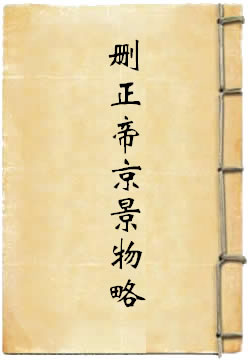 删正帝京景物略